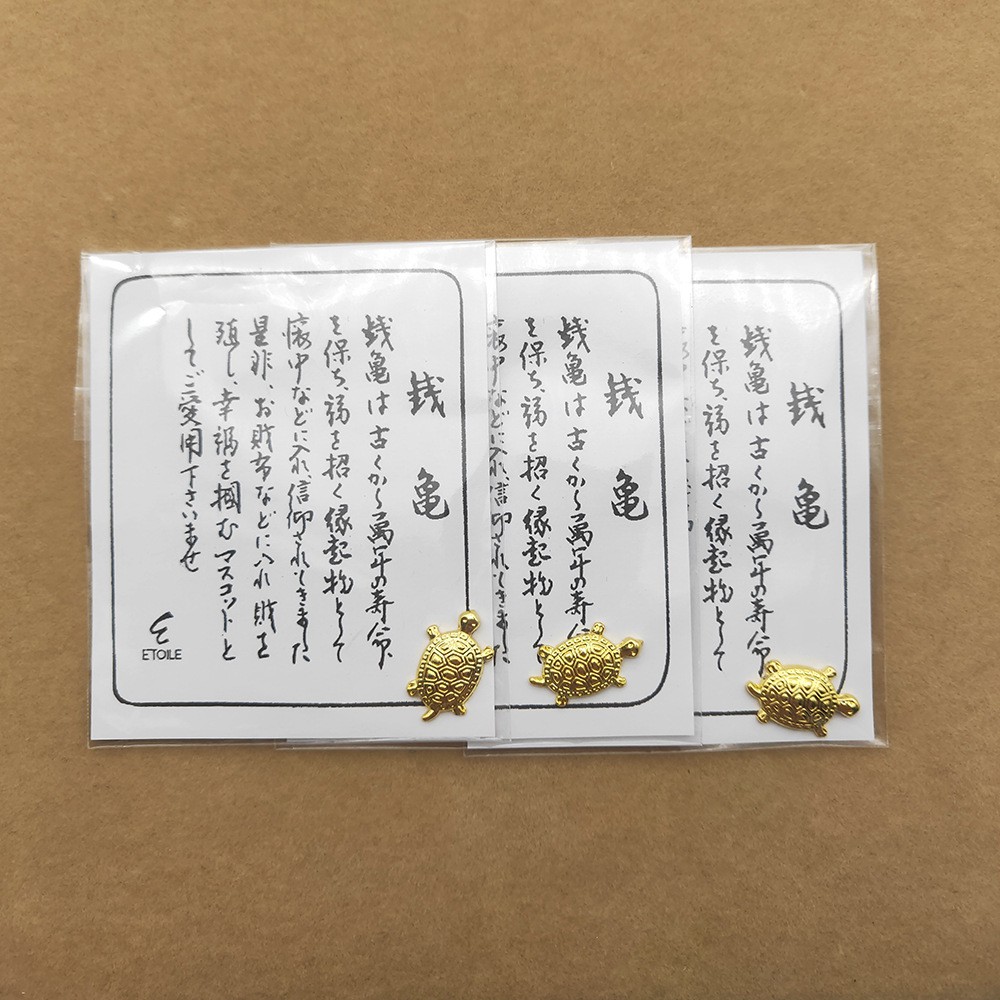 銭亀
銭亀は古くから萬年の寿命
を保ち、福を招く縁起物として
懐中などに入れ、信仰されてきました
是非、お財布などに入れ財を
殖し、幸福を掴むマスコットと
してご愛用下さいませ
ETOILE
銭亀
銭亀は古くから萬年の寿命
を保ち、福を招く縁起物として
銭亀
銭亀は古くから萬年の寿命
を保ち、福を招く縁起物として